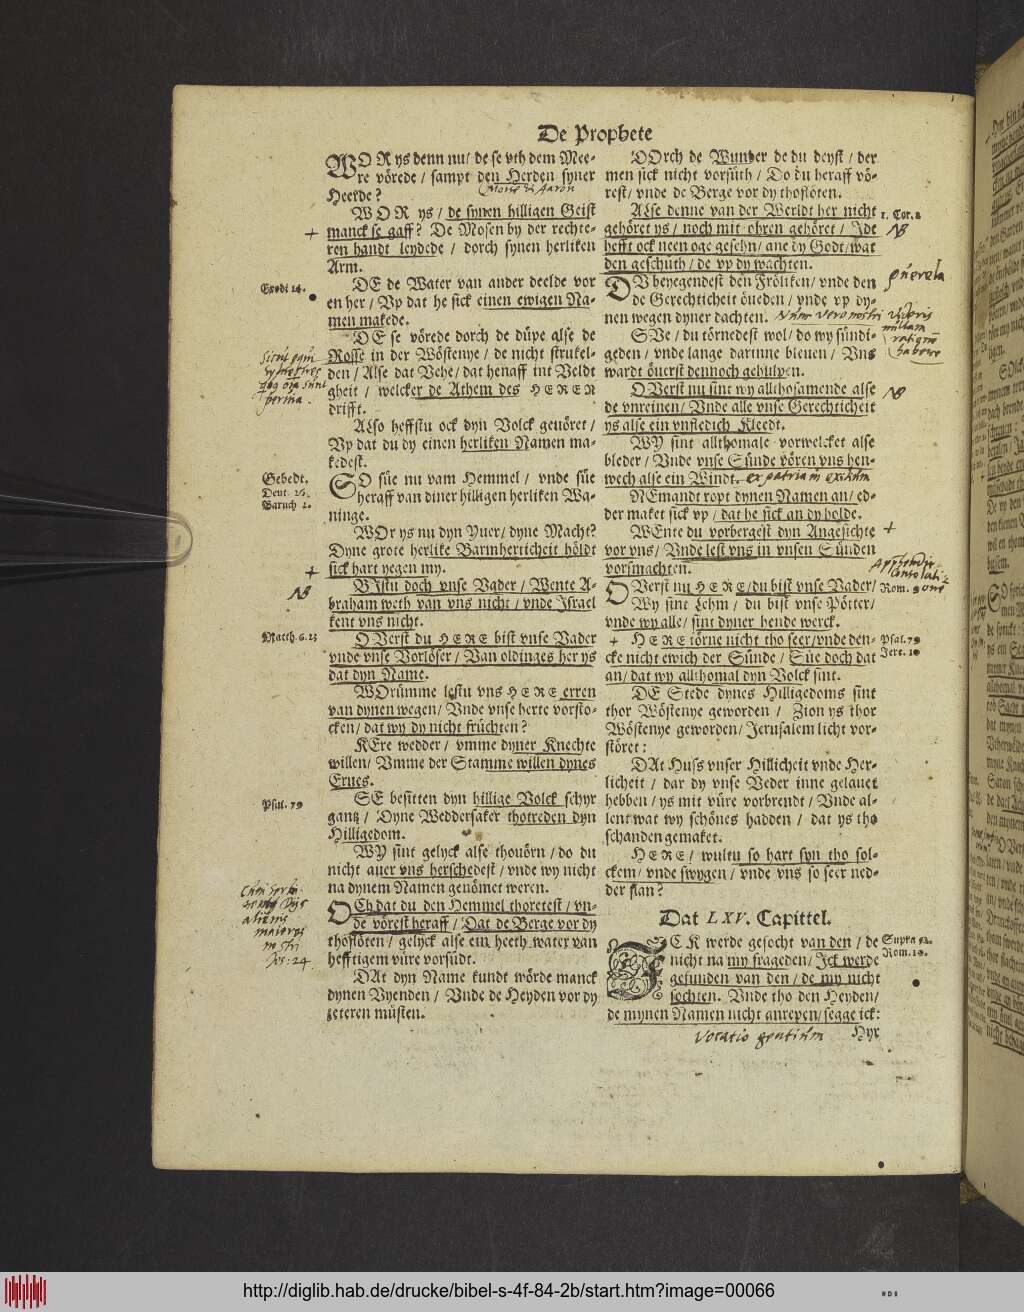 De Prophete
WOR ys denn nu/ de se vth dem Mee-
re vörede/ sampt den Herden syner
Heerde?
WOR ys/ de synen hilligen Geist
manck se gaff? De Mosen by der rechte-
ren handt leydede/ dorch synen herliken
Arm.
Exodi 14.
DE de Water van ander deelde vor
en her/ Vp dat he sick einen ewigen Na-
men makede.
DE se vörede dorch de düpe alse de
Rosse in der Wöstenye/ de nicht strukel-
den/ Alse dat Vehe/ dat henaff int Veldt
gheit/ welcker de Athem des HEREN
drifft.
Also heffstu ock dyn Volck genöret/
Vp dat du dy einen herliken Namen ma-
kedest.
Gebedt.
Deut. 26.
Baruch 2.
SO süe nu vam Hemmel/ vnde süe
heraff van diner hilligen herliken Wa-
ninge.
WOr ys nu dyn Yuer/ dyne Macht?
Dyne grote herlike Barmherticheit höldt
sick hart yegen my.
+
NB
BIstu doch vnse Vader/ Wente A-
braham weth van vns nicht/ vnde Israel
kent vns nicht.
Matth. 6. 23
OVerst du HERE bist vnse Vader
vnde vnse Vorlöser/ Van oldinges her ys
dat dyn Name.
WOrümme lestu vns HERE erren
van dynen wegen/ Vnde vnse herte vorsto-
cken/ dat wy dy nicht früchten?
KEre wedder/ vmme dyner Knechte
willen/ Vmme der Stamme willen dynes
Erues.
Psal. 79
SE besitten dyn hillige Volck schyr
gantz/ Dyne Weddersaker thotreden dyn
Hilligedom.
WY sint gelyck alse thouörn/ do du
nicht auer vns herschedest/ vnde wy nicht
na dynem Namen genömet weren.
OCh dat du den Hemmel thoretest/ vn-
de vörest heraff/ Dat de Berge vor dy
thoflöten/ gelyck alse ein heeth water van
hefftigem vüre vorsüdt.
DAt dyn Name kundt wörde manck
dynen Vyenden/ Vnde de Heyden vor dy
zeteren müsten.
DOrch de Wunder de du deyst/ der
men sick nicht vorsüth/ Do du heraff vö-
rest/ vnde de Berge vor dy thoflöten.
1. Cor. 2
NB
Alse denne van der Werldt her nicht
gehöret ys/ noch mit ohren gehöret/ Jdt
hefft ock neen oge gesehn/ ane dy Godt/ wat
den geschüth/ de vp dy wachten.
DV beyegendest den Fröliken/ vnde den
de Gerechticheit öueden/ vnde vp dy-
nen wegen dyner dachten.
SVe/ du törnedest wol/ do wy sündi-
geden/ vnde lange darinne bleuen/ Vns
wardt öuerst dennoch gehulpen.
NB
OVerst nu sint wy allthosamende alse
de vnreinen/ Vnde alle vnse Gerechticheit
ys alse ein vnfledich Kleedt.
WY sint allthomale vorwelcket alse
bleder/ Vnde vnse Sünde vören vns hen-
wech alse ein Windt. ex patria in exilium
NEmandt ropt dynen Namen an/ ed-
der maket sick vp/ dat he sick an dy holde.
WEnte du vorbergest dyn Angesichte +
vor vns/ Vnde lest vns in vnsen Sünden
vorsmachten.
Rom. 9
OVerst nu HERE/ du bist vnse Vader/
Wy sint Lehm/ du bist vnse Pötter/
vnde wy alle/ sint dyner hende werck.
Psal. 79
Jere. 10
+ HERE törne nicht tho seer/ vnde den-
cke nicht ewich der Sünde/ Süe doch dat
an/ dat wy allthomal dyn Volck sint.
DE Stede dynes Hilligedoms sint
thor Wöstenye geworden/ Zion ys thor
Wöstenye geworden/ Jerusalem licht vor-
störet:
DAt Huss vnser Hillicheit vnde Her-
licheit/ dar dy vnse Veder inne gelauet
hebben/ ys mit vüre vorbrendt/ Vnde al-
lent wat wy schönes hadden/ dat ys tho
schanden gemaket.
HERE/ wultu so hart syn tho sol-
ckem/ vnde swygen/ vnde vns so seer ned-
der slan?
Dat LXV. Capittel.
Rom. 10.
JCK werde gesocht van den/ de
nicht na my frageden/ Jck werde
gefunden van den/ de my nicht
sochten. Vnde tho den Heyden/
de mynen Namen nicht anrepen/ segge ick:
Vocatio gentium
Hyr
http://diglib.hab.de/drucke/bibel-s-4f-84-2b/start.htm?image=00066